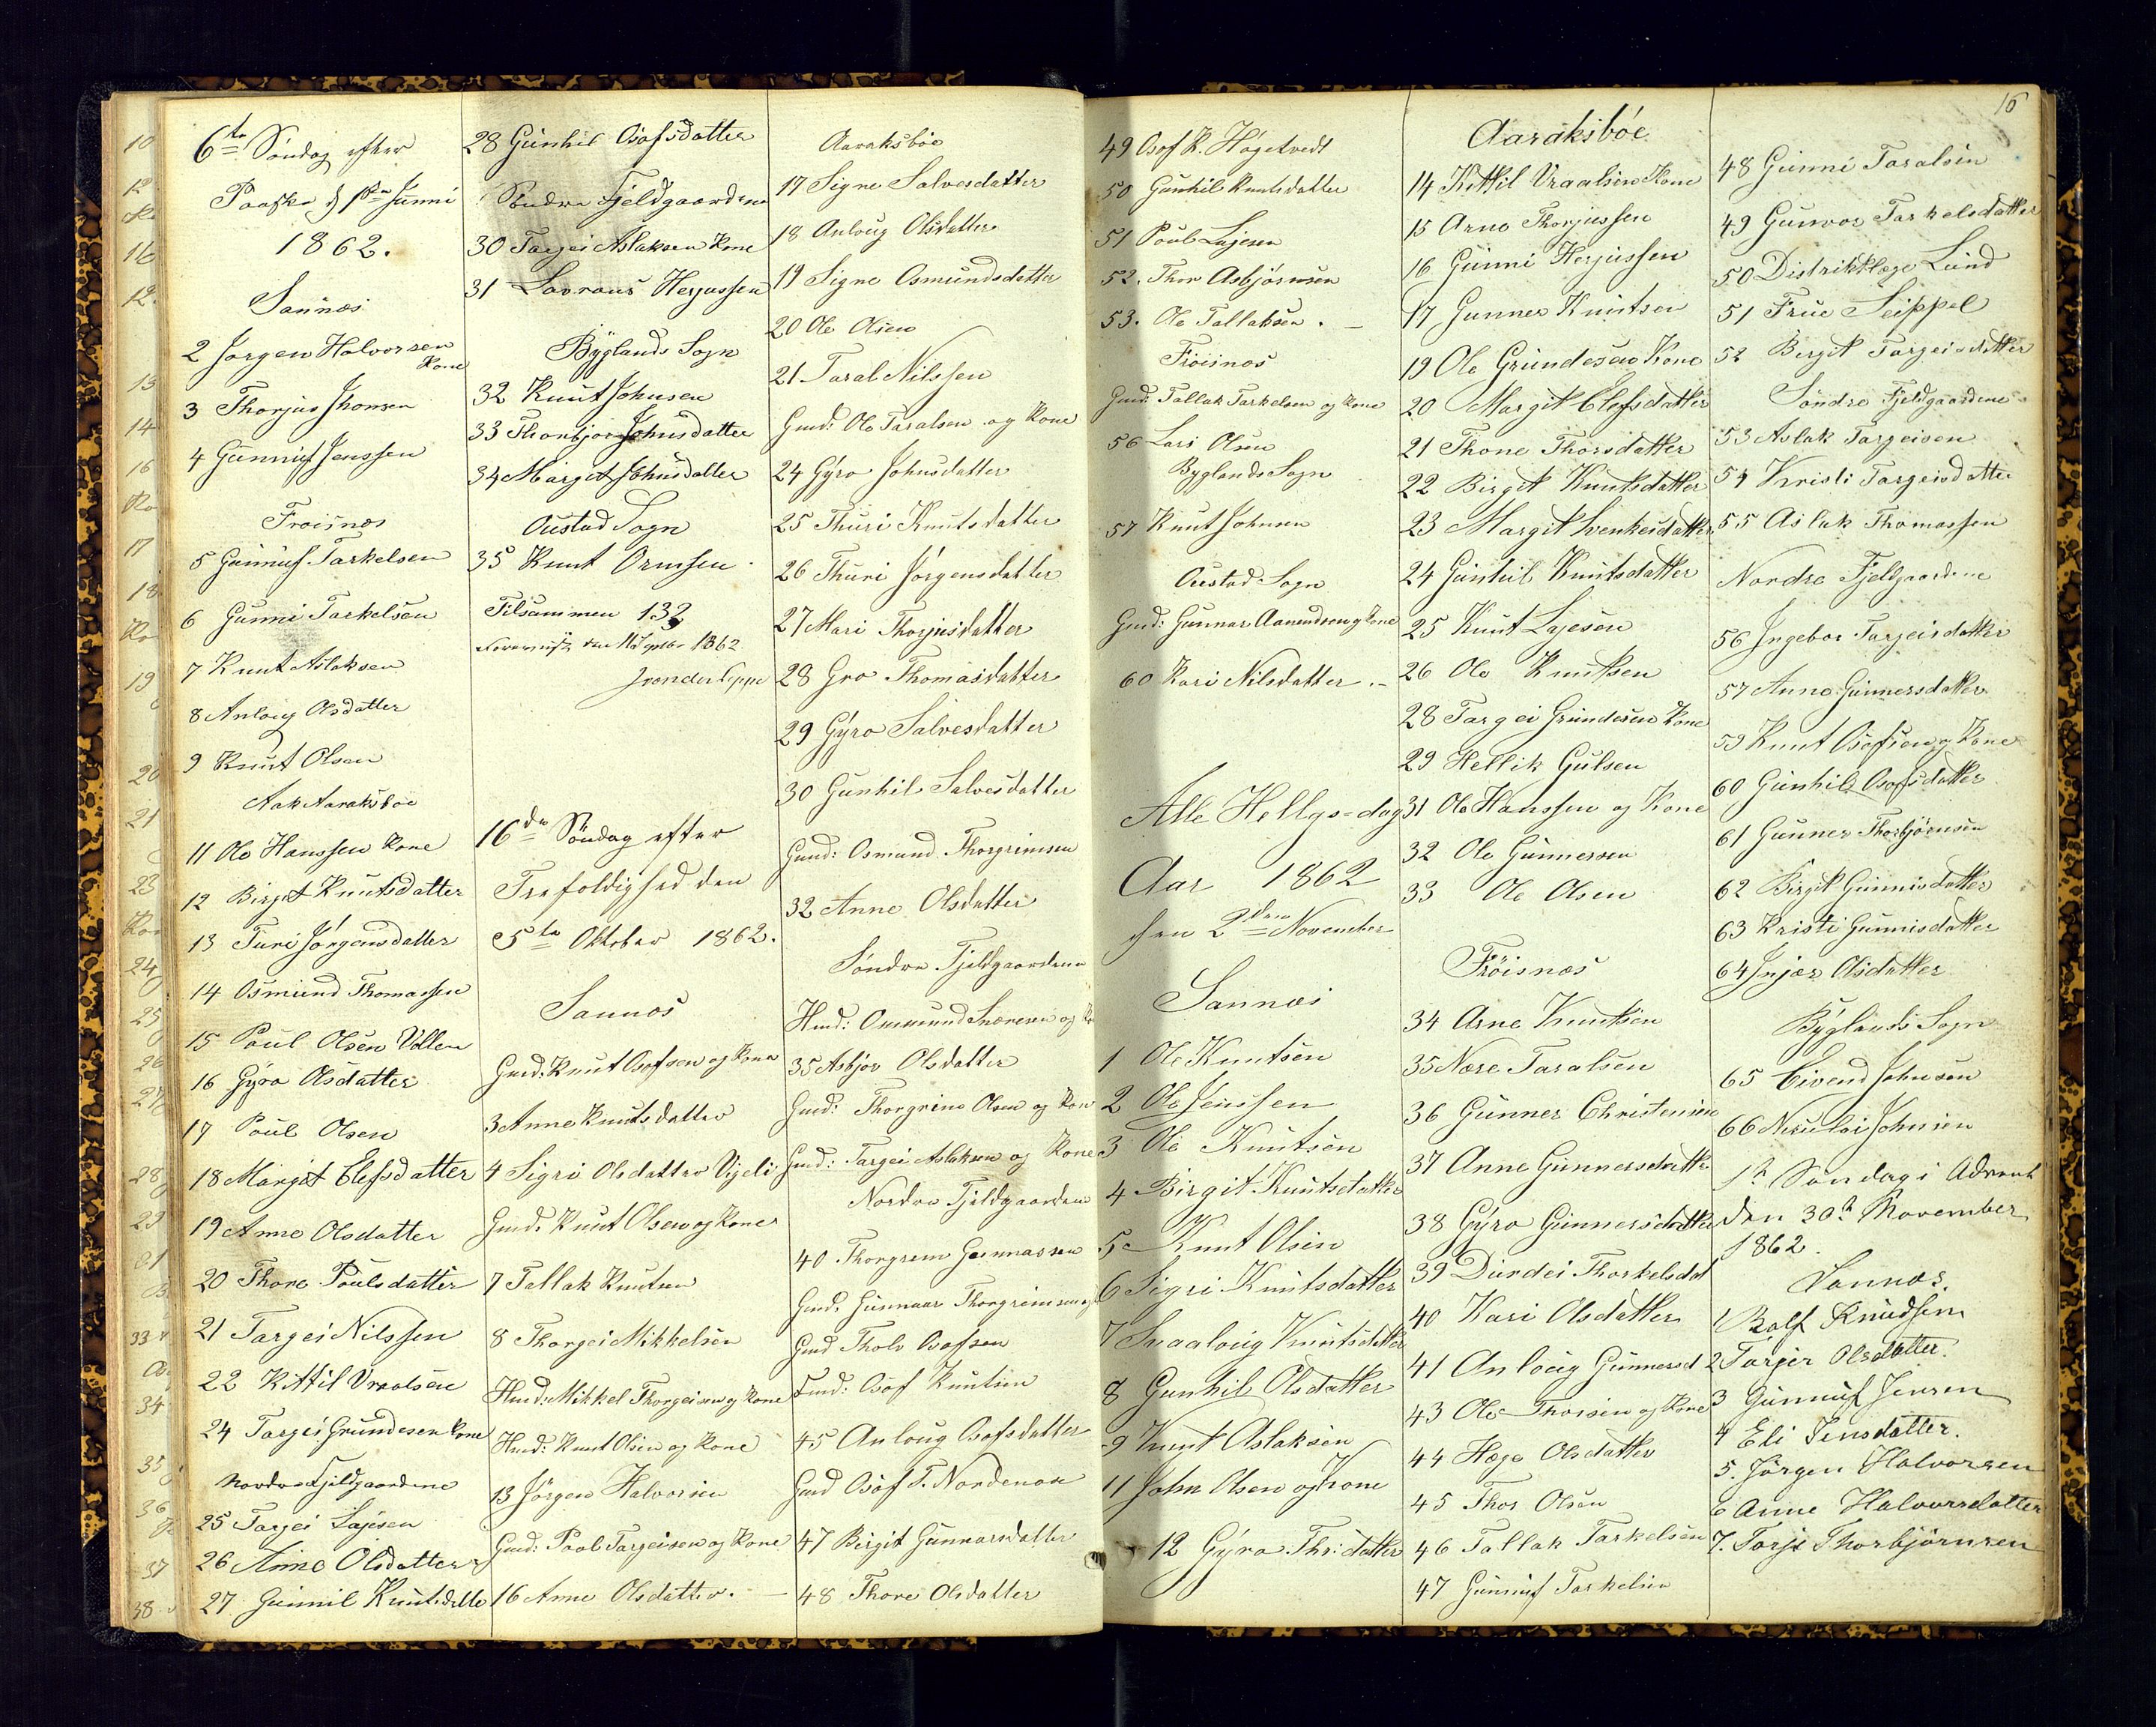 6te Söndag efter
Paaske d 1ste Junni
1862.
Sannæs
2 Jørgen Halvorsen
Kone
3 Thorjus Jhonsen
4 Gunnuf Jenssen
Froisnæs
5 Gunnuf Tarkelsen
6 Gunni Tarkelsen
7 Knut Aslaksen
8 Anloug Olsdatter
9 Knut Olsen
Aaraksboe
11 Ole Hanssen Kone
12 Birgit Knutsdatter
13 Turi Jørgensdatter
14 Osmund Thomassen
15 Poul Olsen Vollen
16 Gyro Olsdatter
17 Poul Olsen
18 Margit Elefsdatter
19 Anne Olsdatter
20 Thone Poulsdatter
21 Targei Nilssen
22 Kittil Vraalsen
24 Targei Grundesen Kone
Nordre Fjeldgaardene
25 Targei Lajesen
26 Anne Olsdatter
27 Gunnil Knutsdatte
28 Gunhil Osofsdatter
Söndre Fjeldgaardene
30 Targei Aslaksen Kone
31 Lavrans Herjussen
Byglands Sogn
32 Knut Johnsen
33 Thorbjør Johnsdatter
34 Margit Johnsdatter
Oustad Sogn
35 Knut Ormsen
Tilsammen 132
1862
16de Söndag efter
Trefoldighed den
5te Oktober 1862.
Sannæs
Gmd: Knut Osofsen og Kone
3 Anne Knutsdatter
4 Sigri Olsdatter Vijeli
Gmd: Knut Olsen og Kone
7 Tallak Knutsen
8 Thorgei Mikkelsen
Hmd: Mikkel Thorgeisen og Kone
Hmd: Knut Olsen og Kone
13 Jørgen Halvorsen
Gmd: Paal Targeisen og Kone
16 Anne Olsdatter.
Aaraksbøe
17 Signe Salvesdatter
18 Anloug Olsdatter
19 Signe Osmundsdatter
20 Ole Olsen
21 Taral Nilssen
Gmd: Ole Taralsen og Kone
24 Gyro Johnsdatter
25 Thuri Knutsdatter
26 Thuri Jørgensdatter
27 Mari Thorjusdatter
28 Gro Thomasdatter
29 Gyro Salvesdatter
30 Gunhil Salvesdatter
Gmd: Osmund Thorgrimsen
32 Anne Olsdatter
Søndre Fjeldgaardene
Hmd: Ommund og
35 Asbjør Olsdatter
Gmd: Thorgrim Olsen og Kon
Gmd: Targei Aslaksen og Kone
Nordre Fjeldgaardene
40 Thorgrim Gunnarsen
Gmd: Gunnar Thorgrimsen og
Gmd Tholv Osofsen
Gmd: Osof Knutsen
45 Anloug Osofsdatter
Gmd Osof T. Nordenaa
47 Birgit Gunnarsdatter
48 Thore Olsdatter
49 Osof K. Høgetvedt
50 Gunhil Knutsdatter
51 Poul Lajesen
52. Thor Asbjørnsen
53. Ole Tallaksen.
Froisnæs
Gmd: Tallak Tarkelsen og Kone
56 Lars Olsen
Byglands Sogn
57 Knut Johnsen
Oustad Sogn
Gmd: Gunnar Aanundsen og Kone
60 Kari Nilsdatter.
Alle Hellgs-dag
Aar 1862
den 2den November
Sannæs
1 Ole Knutsen
2 Ole Jenssen
3 Ole Knutsen
4 Birgit Knutsdatter
5 Knut Olsen
6 Sigri Knutsdatter
7 Knutsdatter
8 Gunhil Olsdatter
9 Knut Aslaksen
11 John Olsen og Kone
12 Gyro Thsdatter
Aaraksbóe
14 Kittil Vraalsen Kone
15 Arne Thorjussen
16 Gunni Herjussen
17 Gunner Knutsen
19 Ole Grundesen Kone
20 Margit Elefsdatter
21 Thone Thorsdatter
22 Birgit Knutsdatter
23 Margit Svenkesdatter
24 Gunhil Knutsdatter
25 Knut Lajesen
26 Ole Knutsen
28 Targei Grundesen Kone
29 Hellik Gulsen
31 Ole Hanssen og Kone
32 Ole Gunnersen
33 Ole Olsen
Fröisnæs
34 Arne Knutsen
35 Nære Taralsen
36 Gunner Christensen
37 Anne Gunnersdatte
38 Gyro Gunnersdatte
39 Durdei Thorkelsdat
40 Kari Olsdatter
41 Anloug Gunnersd
43 Ole Thorsen og Kone
44 Hæge Olsdatter
45 Thor Olsen
46 Tallak Tarkelsen
47 Gunnuf Tarkelsen
16
48 Gunni Taralsen
49 Gunvor Tarkelsdatter
50 Distriktlæge Lund
51 Frue Seippel
52 Birgit Targeisdatter
Søndre Fjeldgaardene
53 Aslak Targeisen
54 Kristi Targeisdatter
55 Aslak Thomassen
Nordre Fjeldgaardene
56 Ingebor Targeisdatter
57 Anne Gunnersdatter
59 Knut Osofsen og Kone
60 Gunhil Osofsdatter
61 Gunner Thorbjørnsen
62 Birgit Gunnisdatter
63 Kristi Gunnisdatter
64 Injær Olsdatter
Byglands Sogn
65 Eivend Johnsen
66 Nikulai Johnsen
1te Søndag i Advent
den 30te November
1862.
Sannæs.
1 Rolf Knudsen
2 Torjer Olsdatter.
3 Gunnuf Jensen
4 Eli Jensdatter.
5. Jörgen Halvorsen
6 Anne Halvorsdatter
7. Torje Thorbjörnsen